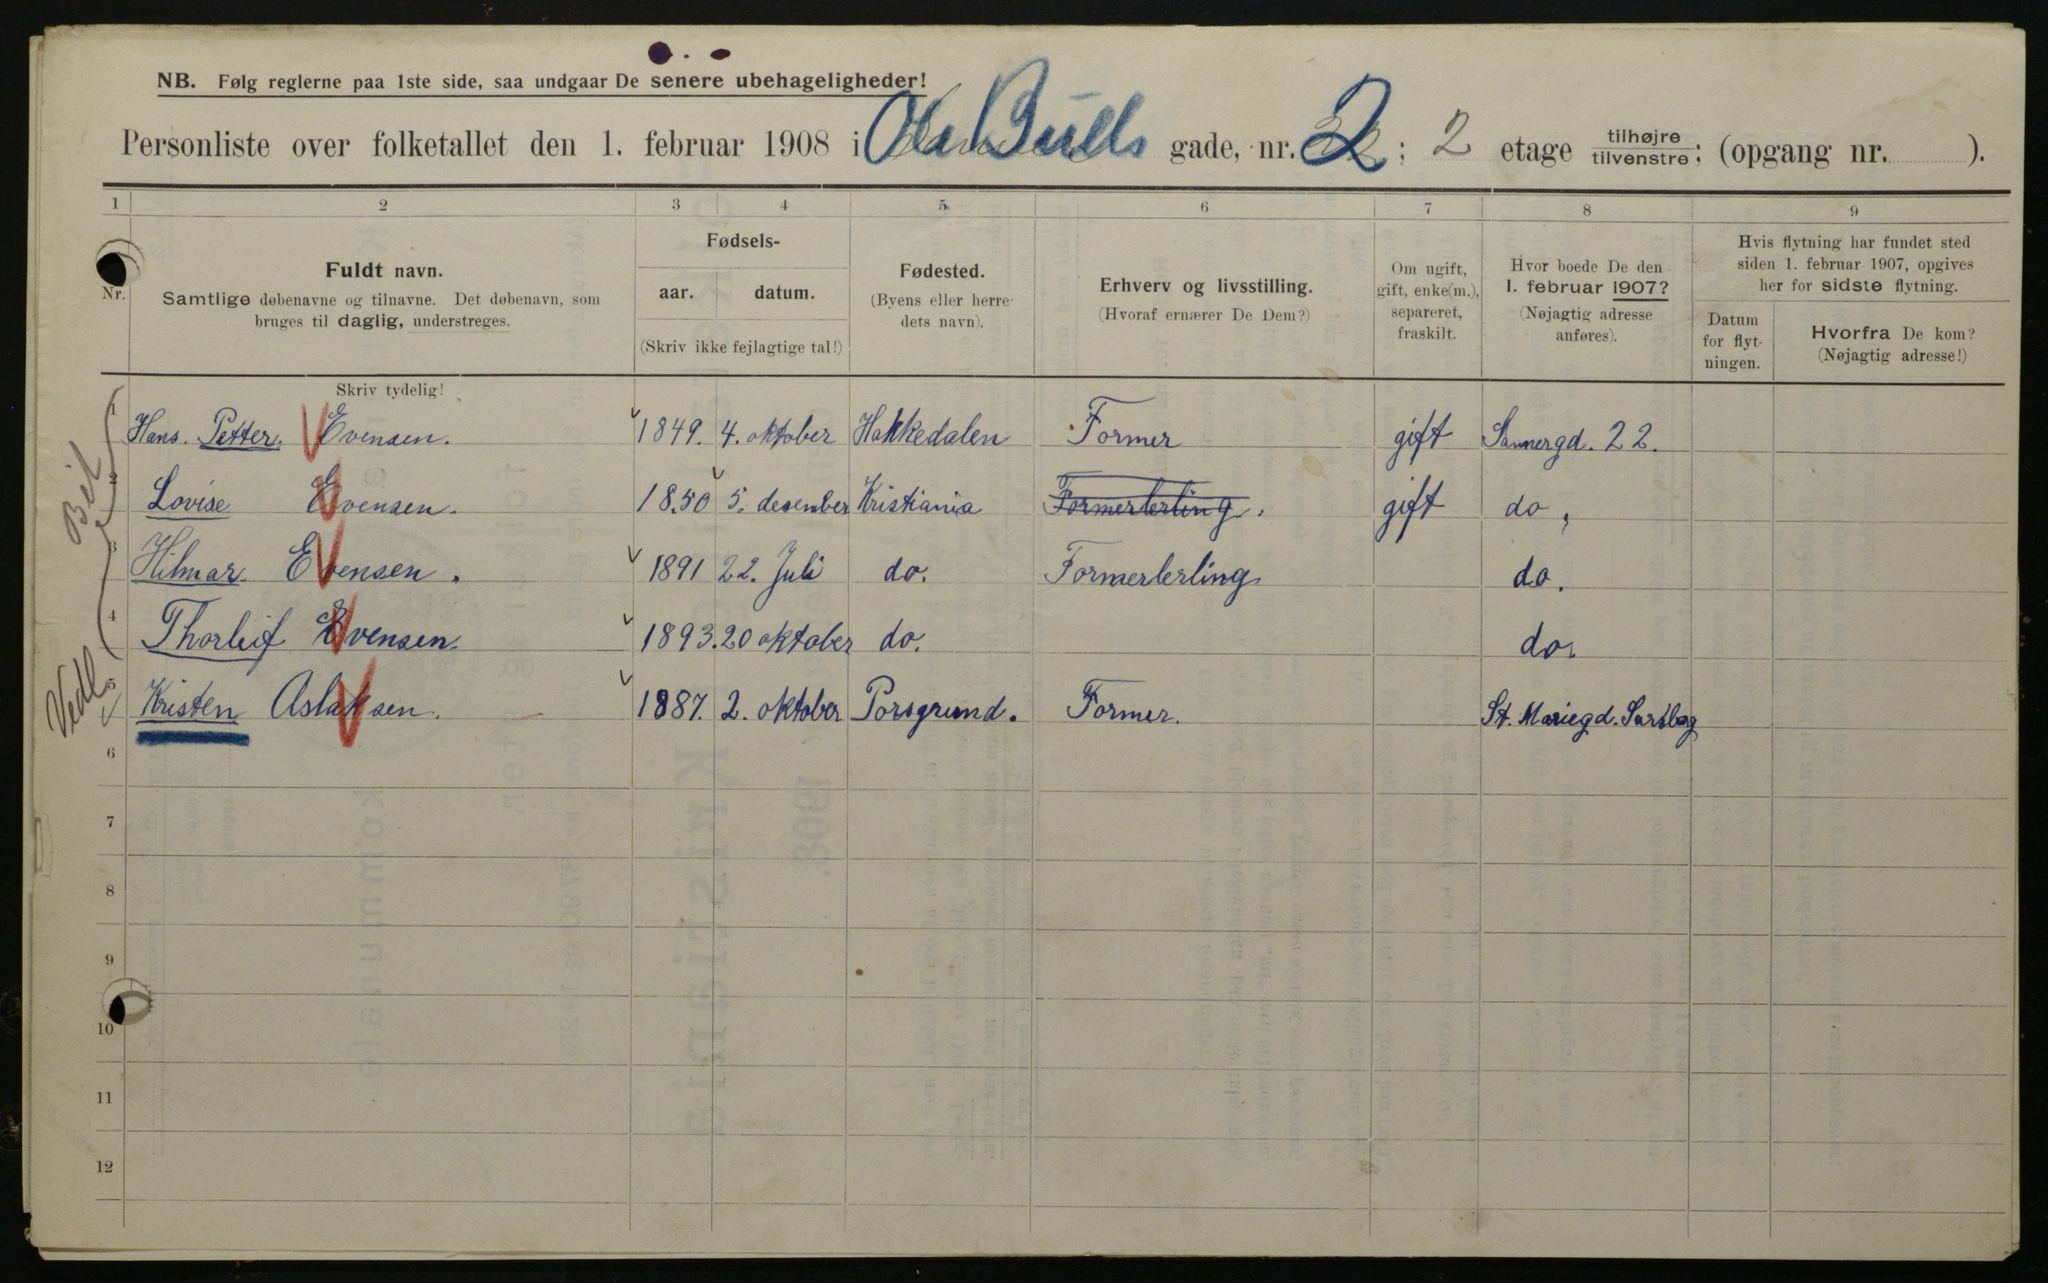 NB. Følg reglerne paa 1ste side, saa undgaar De senere ubehageligheder!
Personliste over folketallet den 1. februar 1908 i Ole Bulls gade, nr. 2; 2 etage tilhøjre/tilvenstre; (opgang nr. ).
1 2 3 4 5 6 7 8 9
Nr.
Fuldt navn.
Samtlige døbenavne og tilnavne. Det døbenavn, som
bruges til daglig, understreges.
Fødsels-
aar. datum.
(Skriv ikke fejlagtige tal!)
Fødested.
(Byens eller herre-
dets navn).
Erhverv og livsstilling.
(Hvoraf ernærer De Dem?)
Om ugift,
gift, enke(m.),
separeret,
fraskilt.
Hvor boede De den
1. februar 1907?
(Nøjagtig adresse
anføres).
Hvis flytning har fundet sted
siden 1. februar 1907, opgives
her for sidste flytning.
Datum
for flyt-
ningen.
Hvorfra De kom?
(Nøjagtig adresse!)
Skriv tydelig!
1 Hans. Petter. Evensen. 1849. 4. oktober Hakkedalen Former gift Sannergd. 22.
2 Lovise Evensen. 18.50 5. desember Kristiania Formerlerling. gift do,
3 Hilmar. Evensen. 1891 22. Juli do. Formerlerling do.
4 Thorleif Evensen. 1893. 20 oktober do. do.
5 Kristen Aslaksen. 1887. 2. oktober Porsgrund. Former. St. Mariegd. Sarsborg
6
7
8
9
10
11
12